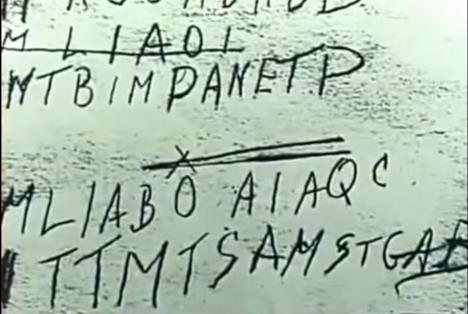 M LIAOL
NTBIMPANETP
X
MLIABO AIAQC
ITTMTSAMSTGA